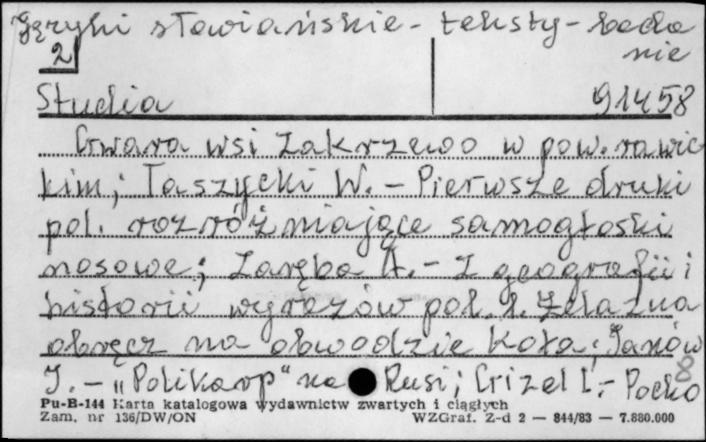 Języki słowiańskie - teksty - bada
nie
2
Studia 91458
Gwara wsi Zakrzewo w pow. rawic
kim; Taszycki W. - Pierwsze druki
pol. rozróżniające samogłoski
nosowe; Zaręba A. - Z geografii i
historii wyrazów pol. 1. Żelazna
obręcz na obwodzie koła; Janów
J. - „Polikarp" na Rusi; Crizel I. - Pocho
8
Pu-B-144 Karta katalogowa wydawnictw zwartych i ciągłych
Zam. nr 136/DW/ON WZGraf. Z-d 2 — 844/83 — 7.880.000